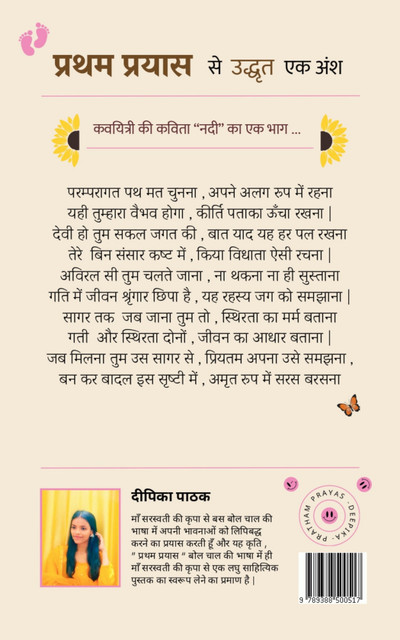 प्रथम प्रयास से उद्धृत एक अंश
कवयित्री की कविता “नदी” का एक भाग ...
परम्परागत पथ मत चुनना , अपने अलग रुप में रहना
यही तुम्हारा वैभव होगा , कीर्ति पताका ऊँचा रखना |
देवी हो तुम सकल जगत की , बात याद यह हर पल रखना
तेरे बिन संसार कष्ट में , किया विधाता ऐसी रचना |
अविरल सी तुम चलते जाना , ना थकना ना ही सुस्ताना
गति में जीवन श्रृंगार छिपा है , यह रहस्य जग को समझाना |
सागर तक जब जाना तुम तो , स्थिरता का मर्म बताना
गती और स्थिरता दोनों , जीवन का आधार बताना |
जब मिलना तुम उस सागर से , प्रियतम अपना उसे समझना ,
बन कर बादल इस सृष्टी में , अमृत रुप में सरस बरसना
दीपिका पाठक
माँ सरस्वती की कृपा से बस बोल चाल की
भाषा में अपनी भावनाओं को लिपिबद्ध
करने का प्रयास करती हूँ और यह कृति ,
" प्रथम प्रयास " बोल चाल की भाषा में ही
माँ सरस्वती की कृपा से एक लघु साहित्यिक
पुस्तक का स्वरूप लेने का प्रमाण है |
PRATHAM PRAYAS -DEEPIKA-
9 789388 500517